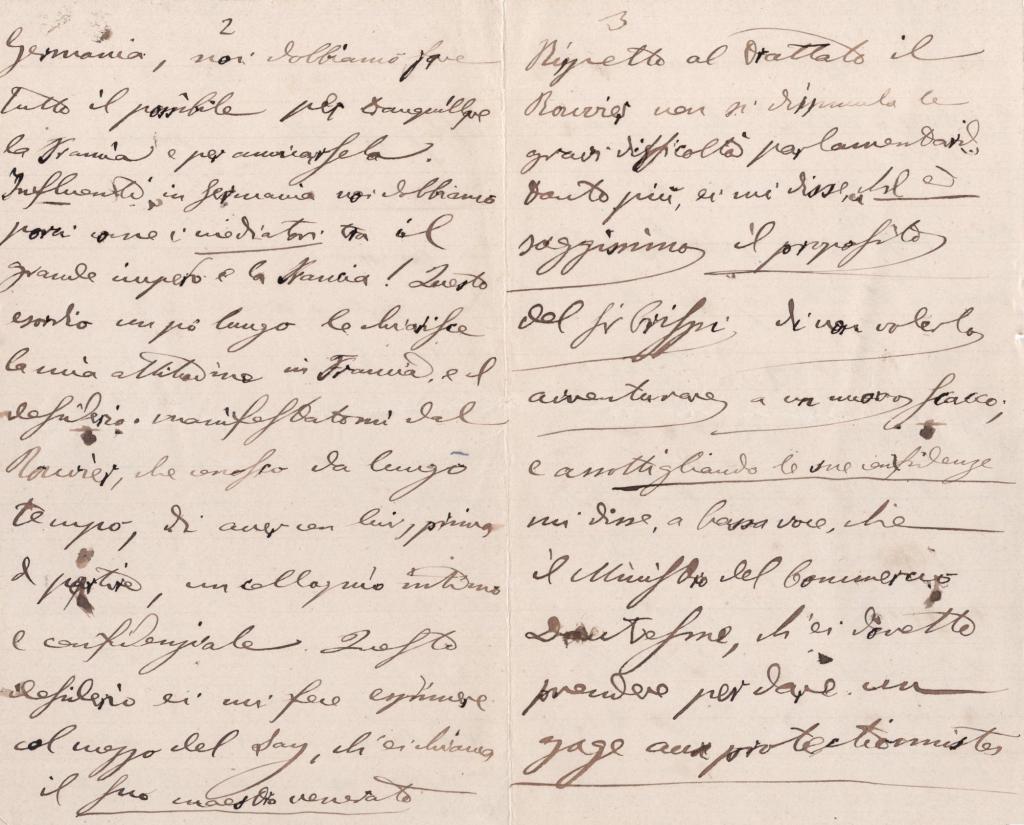 2
Germania, noi dobbiamo fare
tutto il possibile per tranquillare
la Francia e per amicarsela.
Influenti in Germania noi dobbiamo
porci come i mediatori tra il
grande impero e la Francia! Questo
esordio un pò lungo le chiarisce
la mia attitudine in Francia, e il
desiderio manifestatomi dal
Rouvier, che conosco da lungo
tempo, di aver con lui, prima
di partire, un colloquio intimo
e confidenziale. Questo
desiderio ei mi fece esprimere
col mezzo del Say, ch'ei chiama
il suo maestro venerato
3
Rispetto al Trattato il
Rouvier non si dissimula le
gravi difficoltà parlamentari.
Tanto più, ei mi disse, ch' è
saggissimo il proposito
del Sr Crispi, di non volerlo
avventurare a un nuovo scacco;
e assottigliando le sue confidenze
mi disse, a bassa voce, che
il Ministro del Commercio
Dautresme, ch'ei dovette
prendere per dare un
gage aux protectionnistes